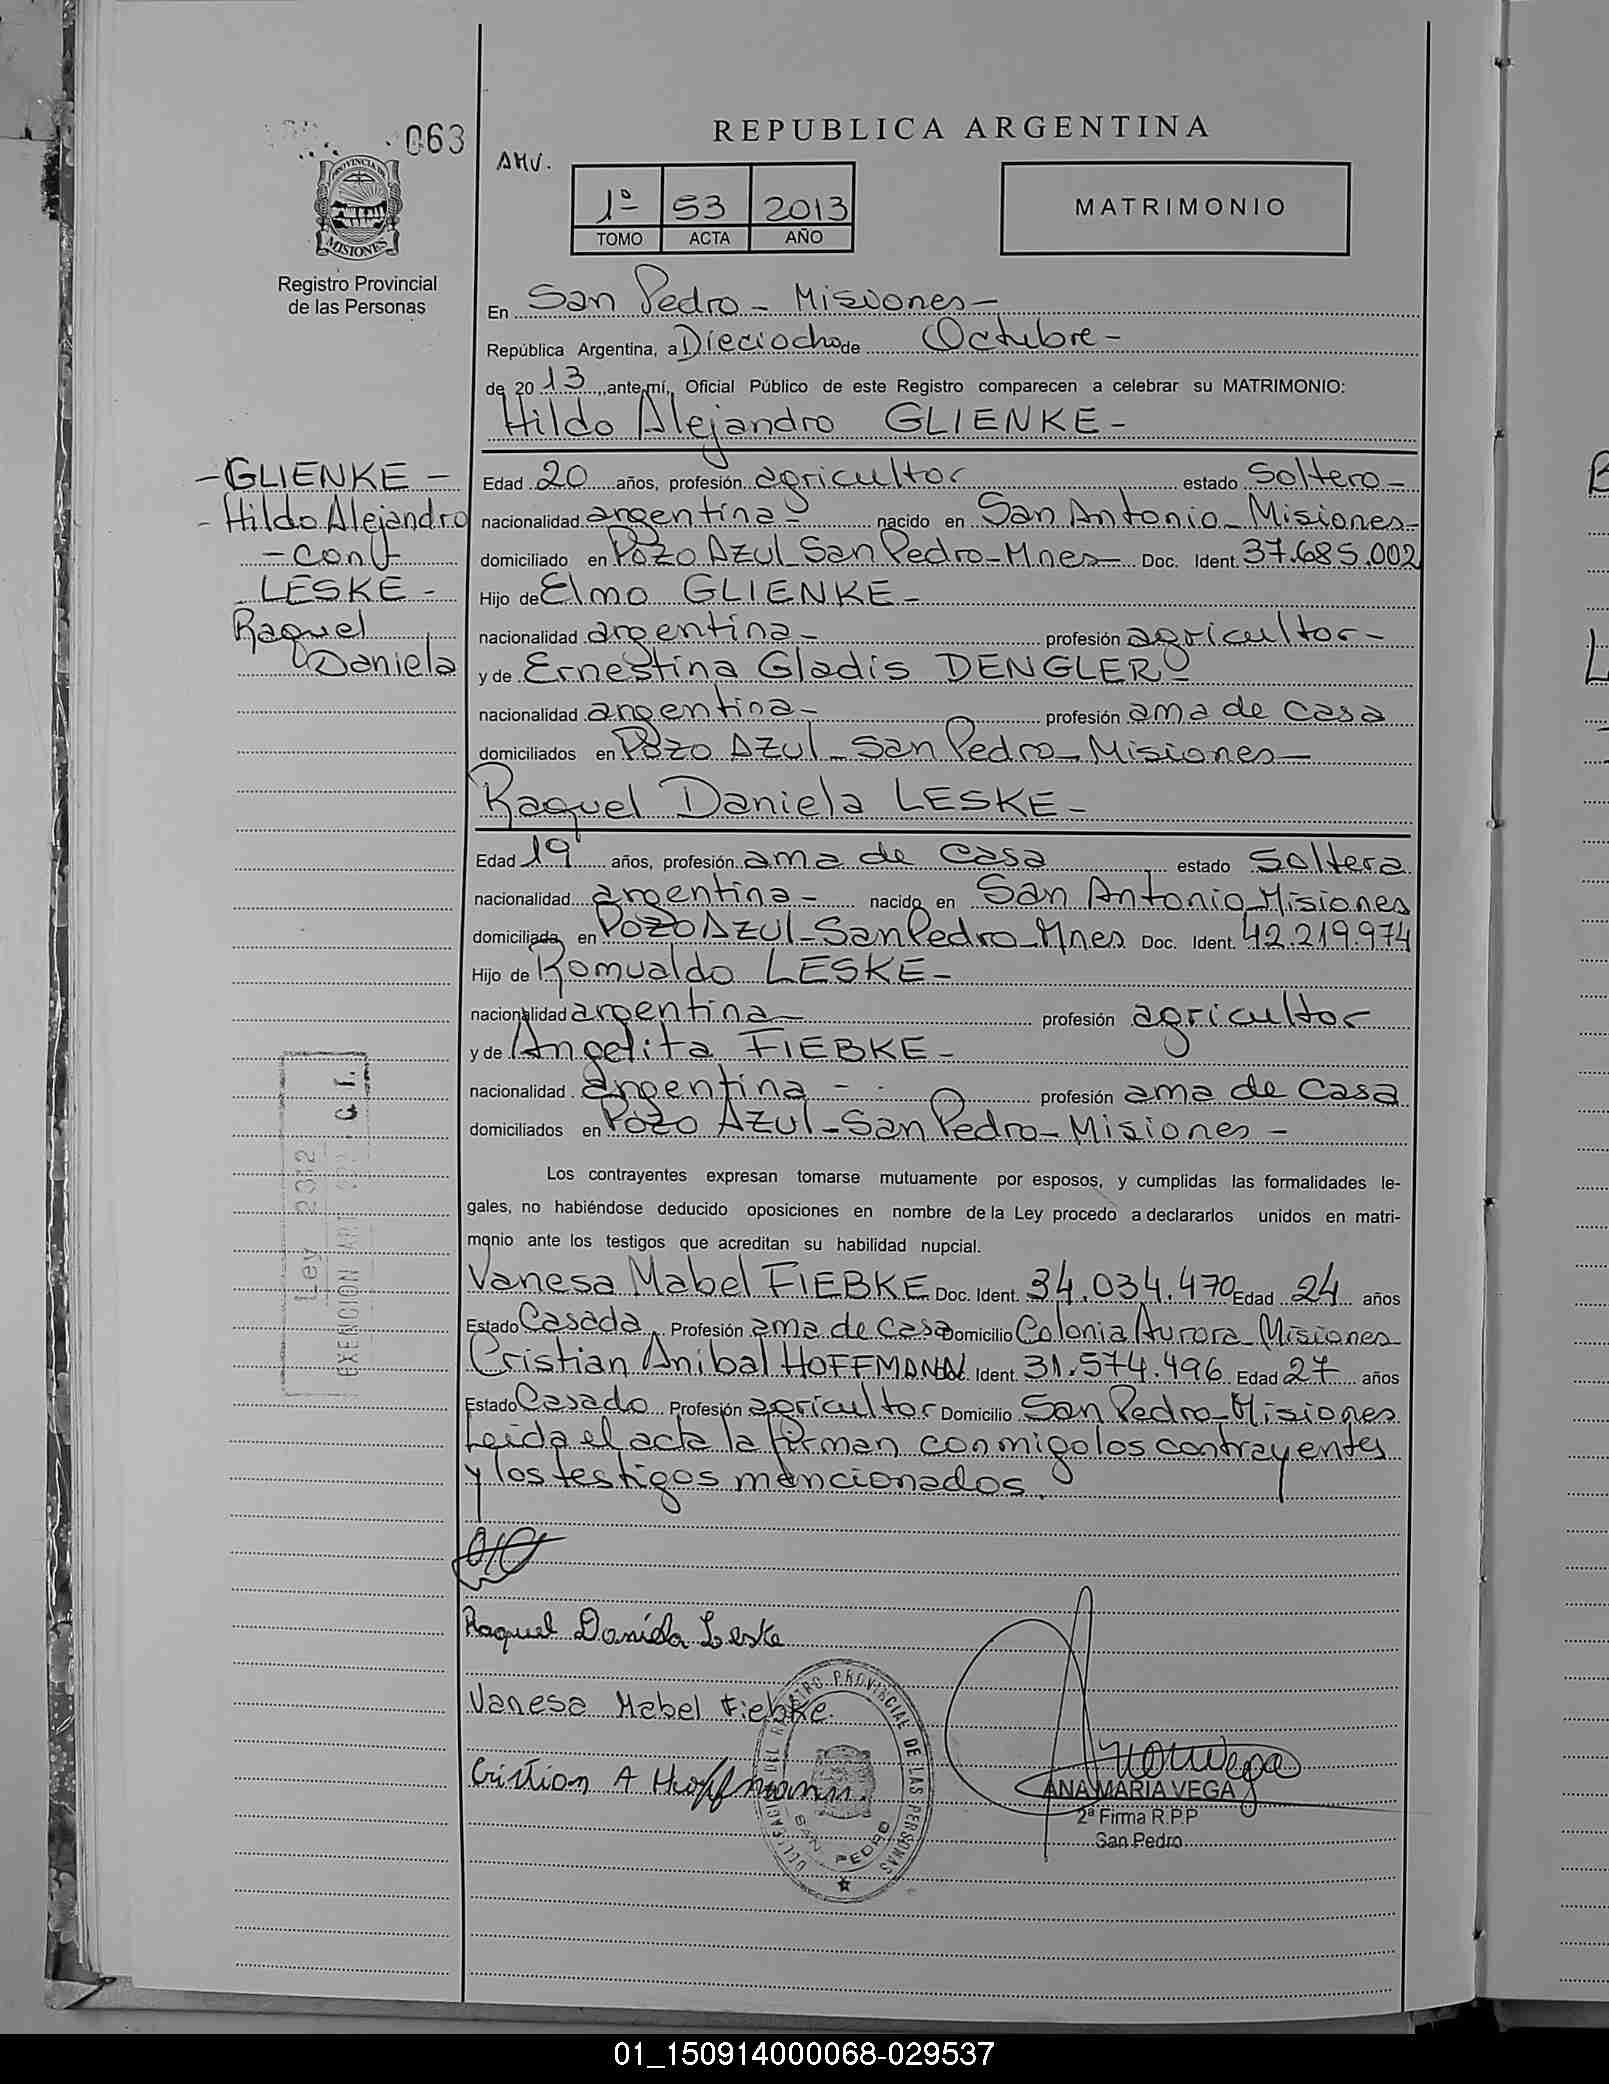 063
PROVINCIA DE
MISIONES
Registro Provincial
de las Personas
REPUBLICA ARGENTINA
AMV.
1º 53 2013
TOMO ACTA AÑO
MATRIMONIO
En San Pedro - Misiones -
República Argentina, a Dieciocho de Octubre -
de 20 13 ,,ante mí,, Oficial Público de este Registro comparecen a celebrar su MATRIMONIO:
Hildo Alejandro GLIENKE -
- GLIENKE -
- Hildo Alejandro
- con -
LESKE -
Raquel
Daniela
Edad 20 años, profesión agricultor estado Soltero -
nacionalidad argentina - nacido en San Antonio - Misiones -
domiciliado en Pozo Azul - San Pedro - Mnes - Doc. Ident. 37.685.002
Hijo de Elmo GLIENKE -
nacionalidad argentina - profesión agricultor -
y de Ernestina Gladis DENGLER -
nacionalidad argentina - profesión ama de casa
domiciliados en Pozo Azul - San Pedro - Misiones -
Raquel Daniela LESKE -
Edad 19 años, profesión ama de casa estado Soltera
nacionalidad argentina - nacido en San Antonio - Misiones
domiciliada en Pozo Azul - San Pedro - Mnes Doc. Ident. 42.219.974
Hijo de Romualdo LESKE -
nacionalidad argentina - profesión agricultor
y de Angelita FIEBKE -
nacionalidad argentina - profesión ama de casa
domiciliados en Pozo Azul - San Pedro - Misiones -
Los contrayentes expresan tomarse mutuamente por esposos, y cumplidas las formalidades le-
gales, no habiéndose deducido oposiciones en nombre de la Ley procedo a declararlos unidos en matri-
monio ante los testigos que acreditan su habilidad nupcial.
Vanesa Mabel FIEBKE Doc. Ident. 34.034.470 Edad 24 años
Estado Casada Profesión ama de casa Domicilio Colonia Aurora - Misiones
Cristian Anibal HOFFMANN Doc. Ident. 31.574.496 Edad 27 años
Estado Casado Profesión agricultor Domicilio San Pedro - Misiones
Leida el acta la firman conmigo los contrayentes
y los testigos mencionados.
Ley 2312
EXENCION
Raquel Daniela Leske
Vanesa Mabel Fiebke
Cristian A Hoffmann
DELEGACION DEL REGISTRO PROVINCIAL DE LAS PERSONAS
SAN PEDRO
ANA MARIA VEGA
2ª Firma R.P.P
San Pedro
01_150914000068-029537